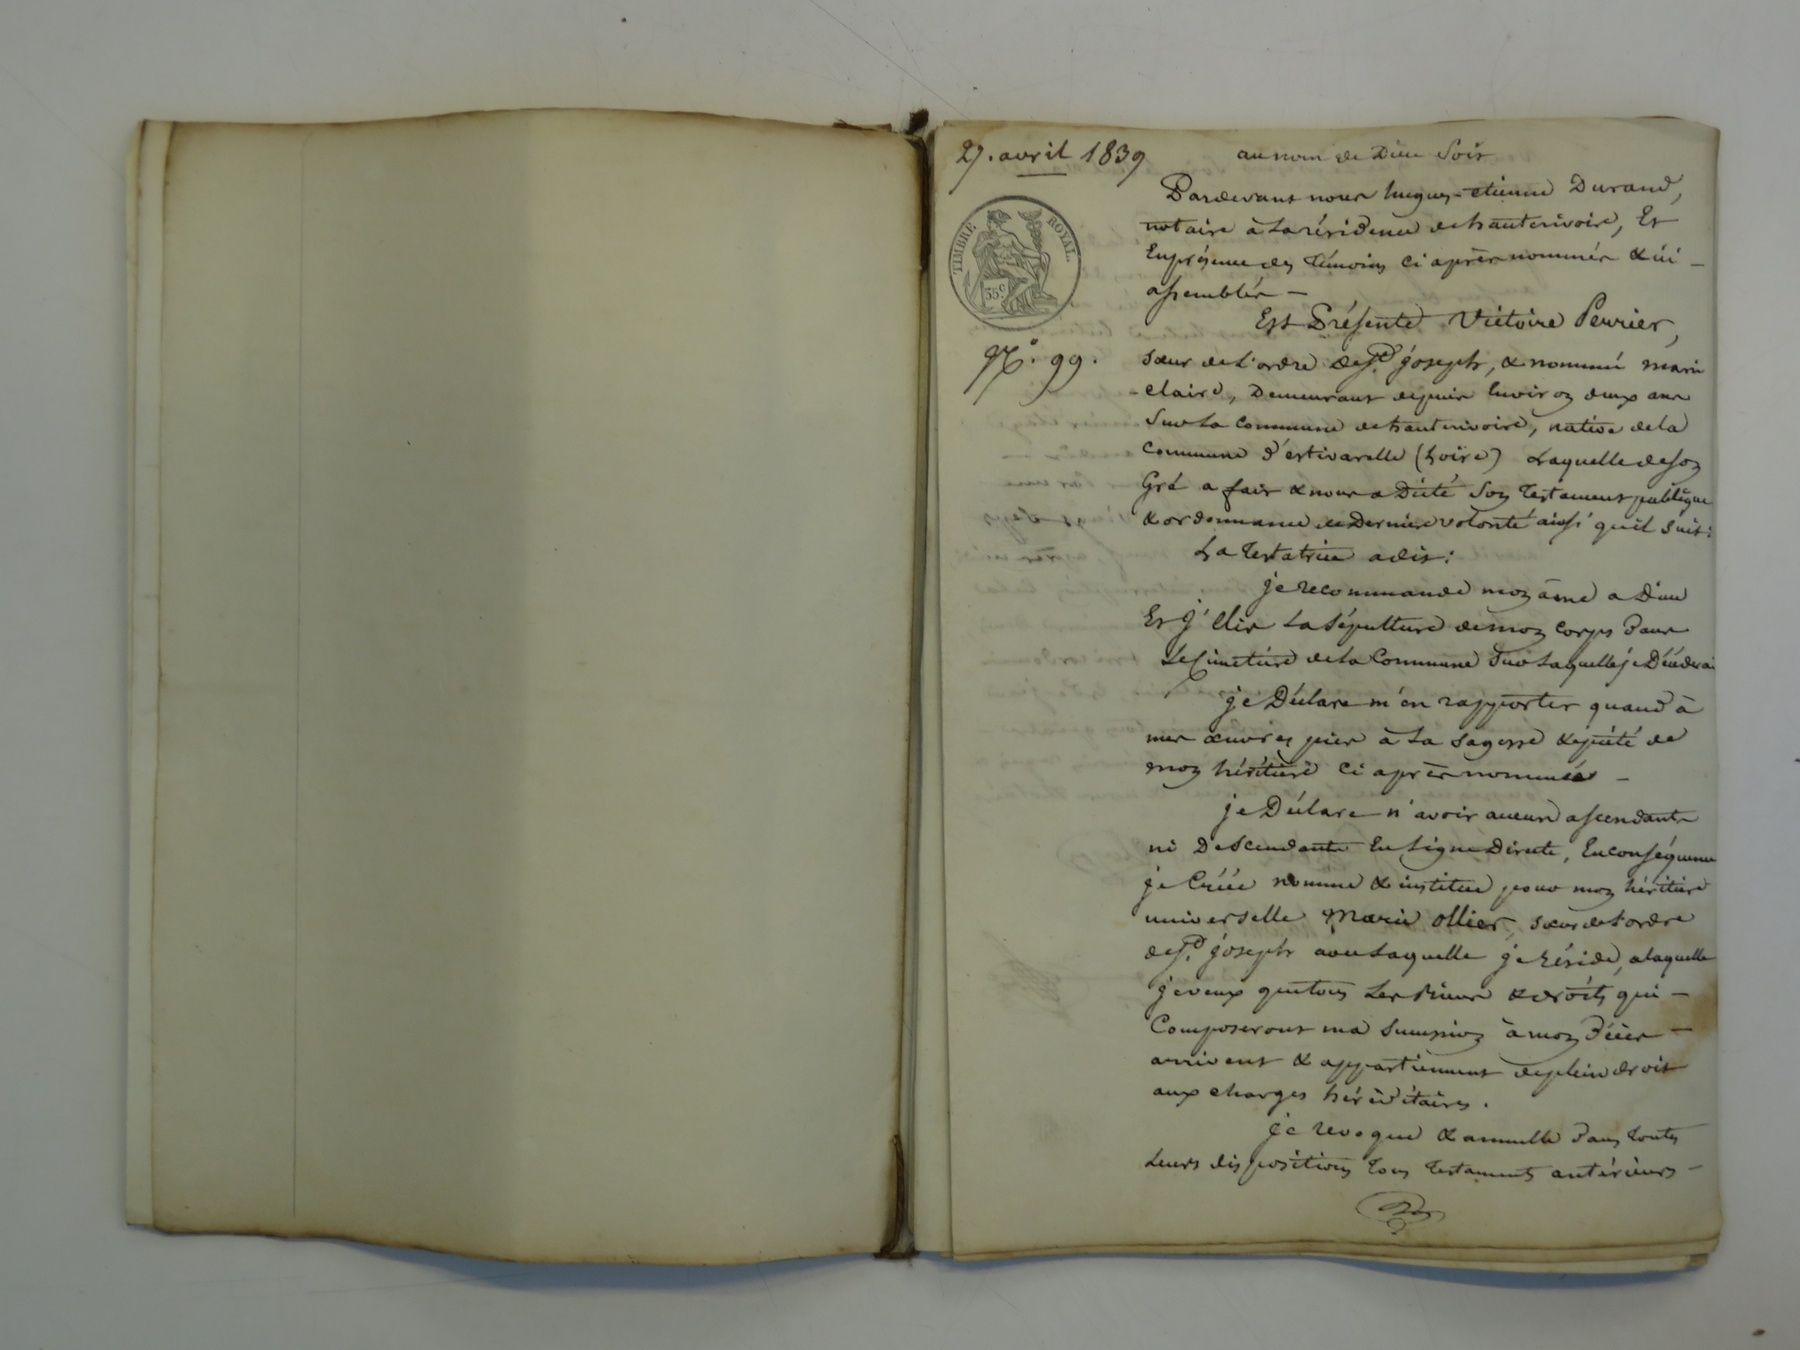 27. avril 1839
au nom de Dieu Soit
TIMBRE ROYAL.
35 c.
N°. 99.
Pardevant nous hugues-etienne Durand,
notaire à la résidence de hauterivoire, Et
En présence des témoins ci après nommés & ici –
assemblés –
Est Présente Victoire Perrier,
sœur de l'ordre de St. joseph, & nommée marie
-claire, Demeurant depuis Environ deux ans
Sur la Commune de hauterivoire, native de la
Commune d'estivarelle (Loire) Laquelle de son
Gré a fait & nous a Dicté Son testament publique
& ordonnance de Dernière volonté ainsi qu'il suit:
La testatrice a dit:
je recommande mon âme a Dieu
Et j'Elis la Sépulture de mon corps Dans
Le Cimetière de la Commune Sur laquelle je Décèderai
je Déclare m'en rapporter quand à
mes œuvres pies à la sagesse & piété de
mon héritière ci après nommée –
je Déclare n'avoir aucuns ascendants
ni Descendants En Ligne Directe, En conséquence
je Créée nomme & institue pour mon héritière
universelle Marie ollier, sœur de l'ordre
de St. joseph avec laquelle je réside, a laquelle
je veux que tous Les Biens & droits qui –
Composeront ma Succession à mon Décès –
arrivent & appartiennent de plein droit
aux charges héréditaires.
je revoque & annulle Dans toutes
Leurs dispositions tous testaments antérieurs –